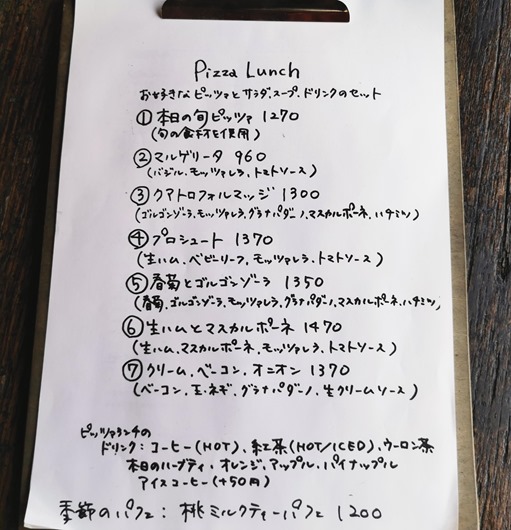 Pizza Lunch
お好きなピッツァとサラダ、スープ、ドリンクのセット
① 本日の旬ピッツァ 1270
(旬の食材を使用)
② マルゲリータ 960
(バジル、モッツァレラ、トマトソース)
③ クアトロフォルマッジ 1300
(ゴルゴンゾーラ、モッツァレラ、グラナパダーノ、マスカルポーネ、ハチミツ)
④ プロシュート 1370
(生ハム、ベビーリーフ、モッツァレラ、トマトソース)
⑤ 春菊とゴルゴンゾーラ 1350
(春菊、ゴルゴンゾーラ、モッツァレラ、グラナパダーノ、マスカルポーネ、ハチミツ)
⑥ 生ハムとマスカルポーネ 1470
(生ハム、マスカルポーネ、モッツァレラ、トマトソース)
⑦ クリーム、ベーコン、オニオン 1370
(ベーコン、玉ネギ、グラナパダーノ、生クリームソース)
ピッツァランチの
ドリンク:コーヒー(HOT)、紅茶(HOT/ICED)、ウーロン茶
本日のハーブティ、オレンジ、アップル、パイナップル
アイスコーヒー(+50円)
季節のパフェ:桃ミルクティーパフェ 1200